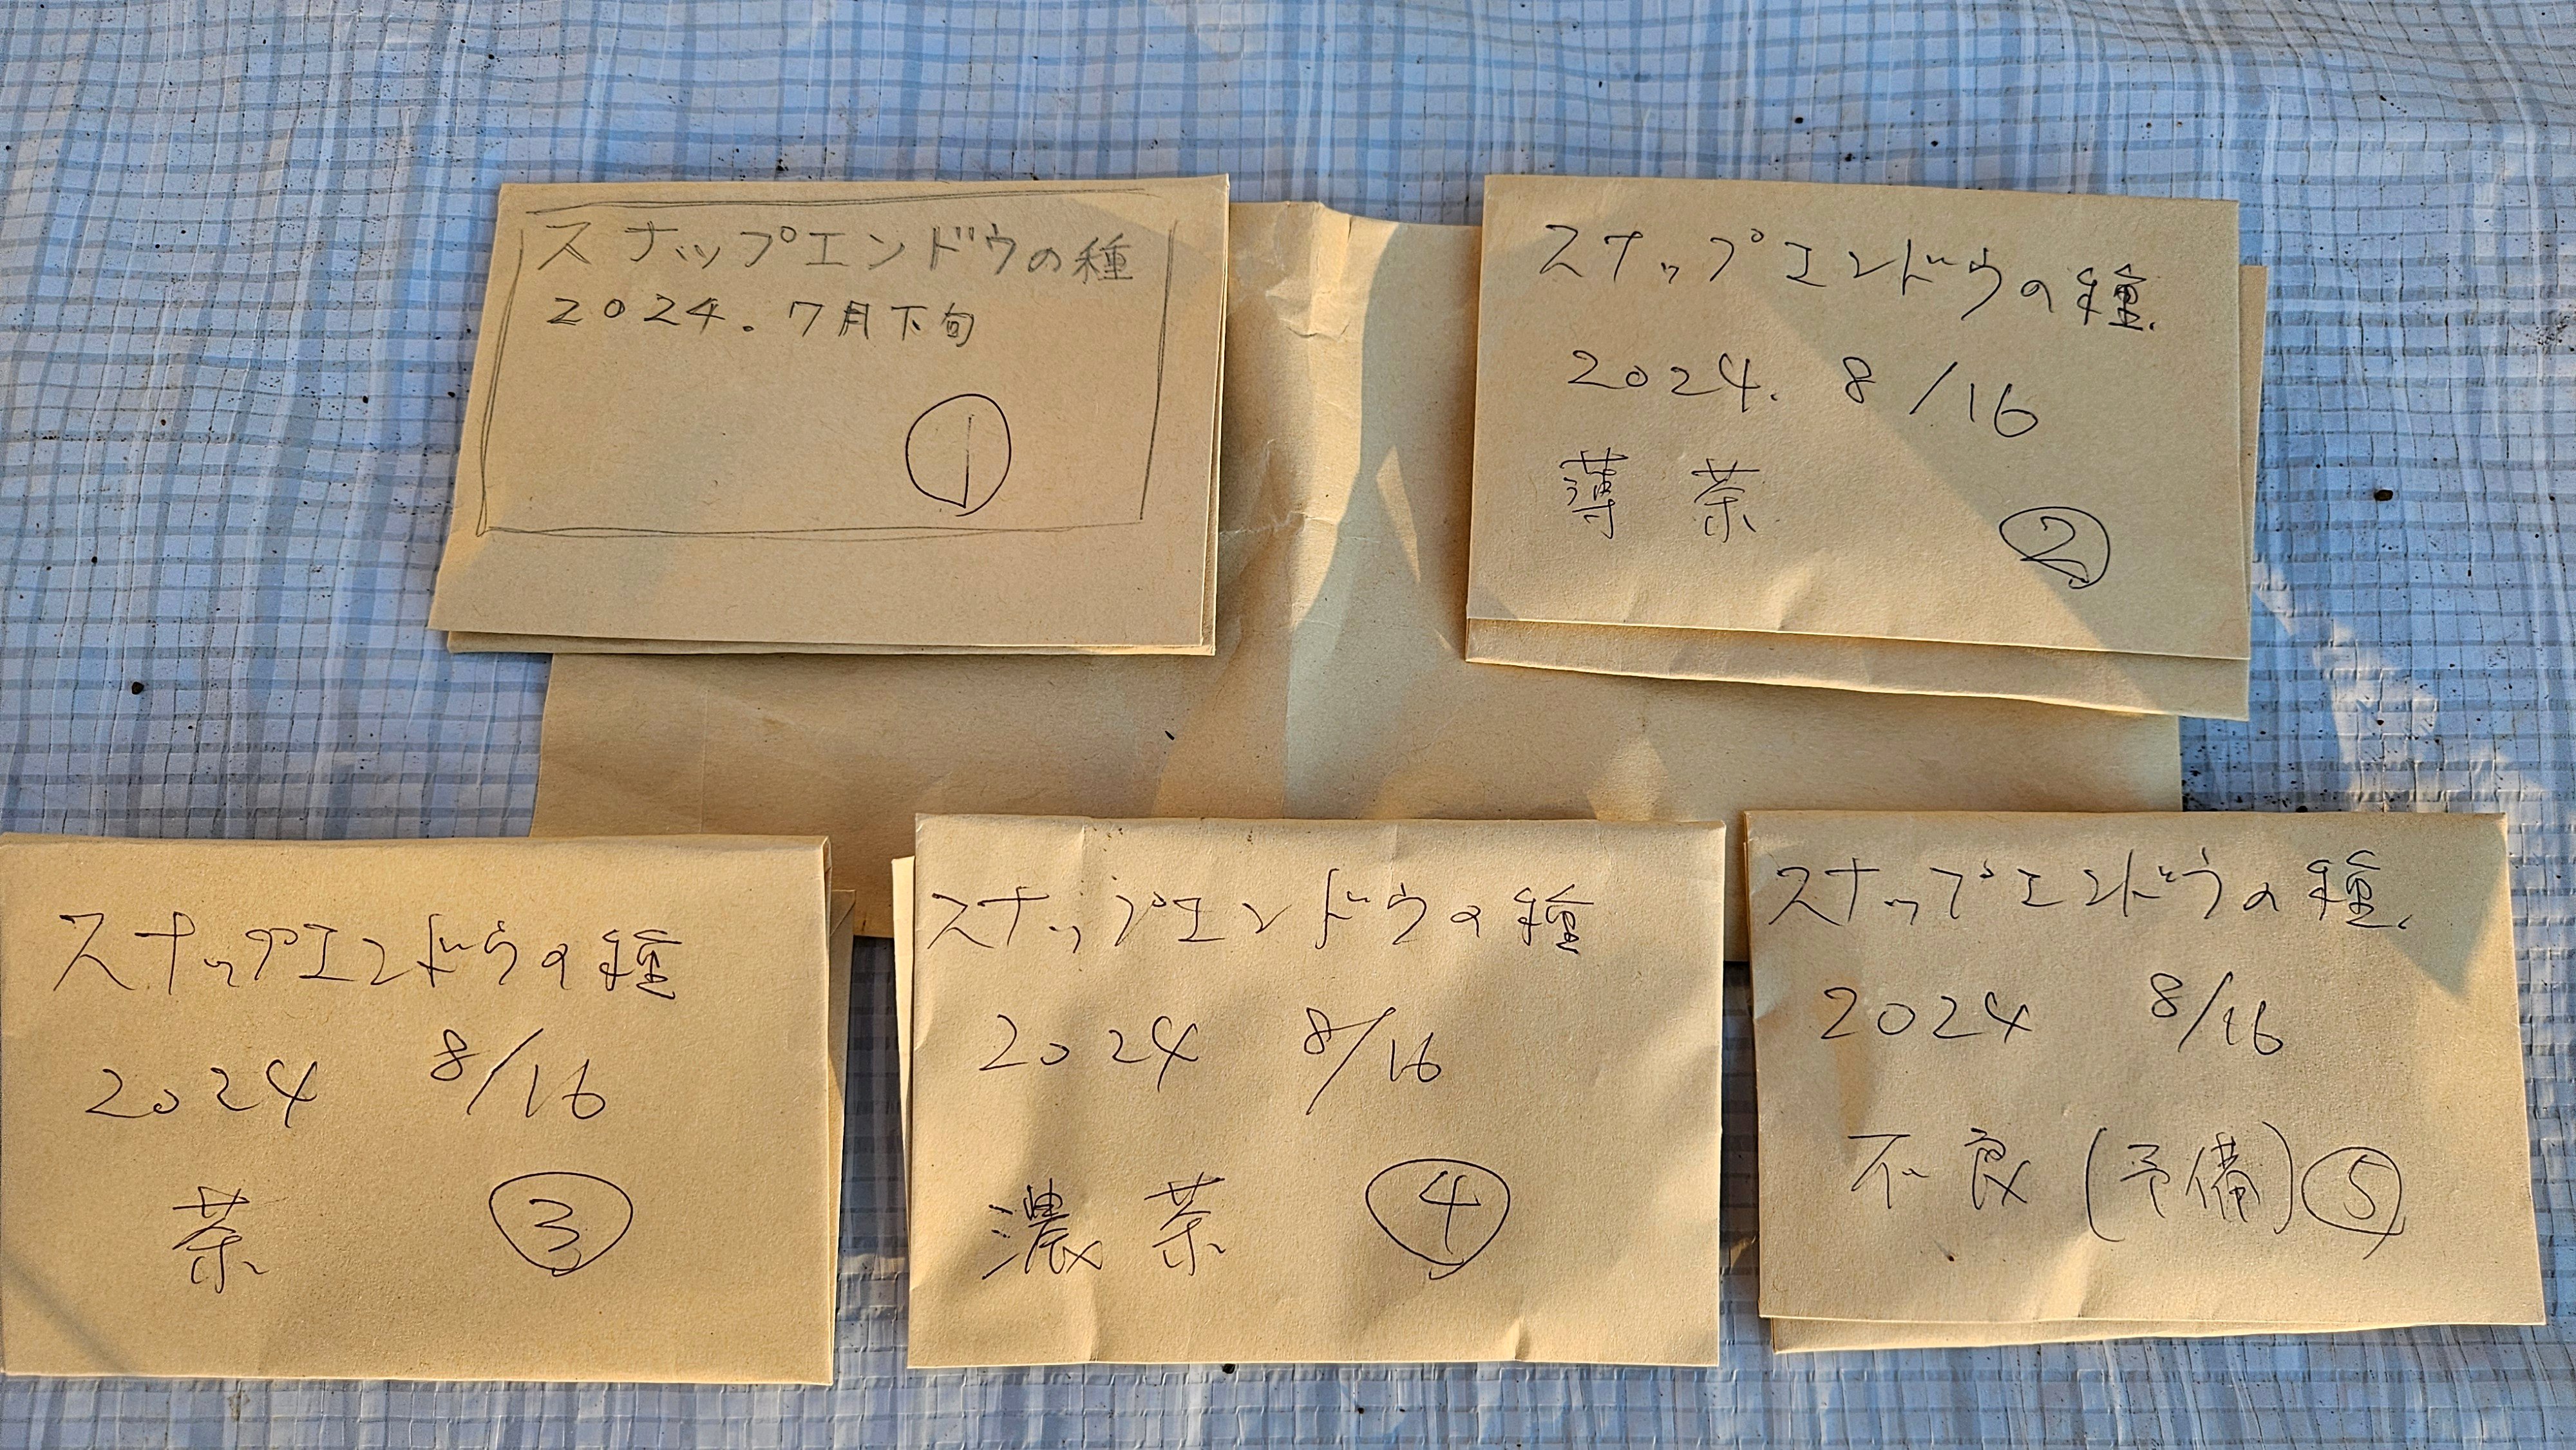 スナップエンドウの種
2024.7月下旬
①
スナップエンドウの種.
2024. 8/16
薄茶 ②
スナップエンドウの種
2024 8/16
茶 ③
スナップエンドウの種
2024 8/16
濃茶 ④
スナップエンドウの種.
2024 8/16
不良(予備)⑤